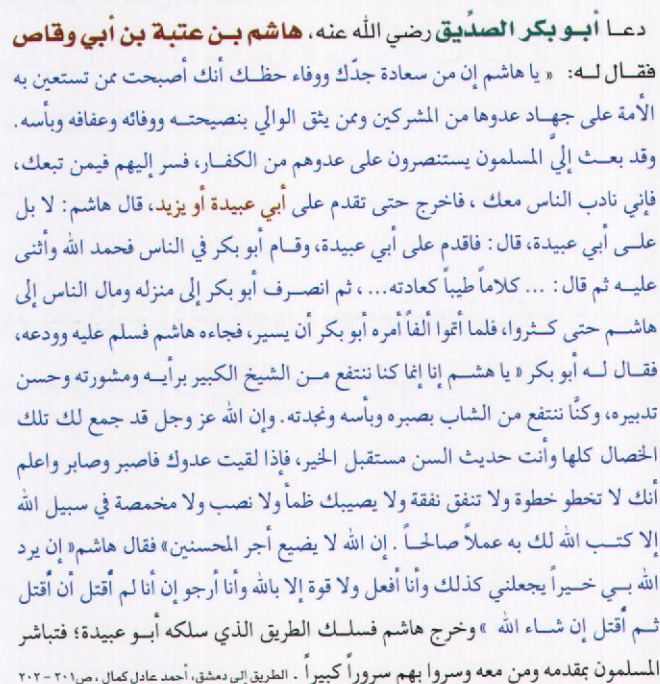 دعا أبو بكر الصدِّيق رضي الله عنه، هاشم بن عتبة بن أبي وقاص
فقال له: « يا هاشم إن من سعادة جدّك ووفاء حظك أنك أصبحت ممن تستعين به
الأمة على جهاد عدوها من المشركين وممن يثق الوالي بنصيحته ووفائه وعفافه وبأسه.
وقد بعث إليَّ المسلمون يستنصرون على عدوهم من الكفار، فسر إليهم فيمن تبعك،
فإني نادب الناس معك ، فاخرج حتى تقدم على أبي عبيدة أو يزيد، قال هاشم: لا بل
على أبي عبيدة، قال: فاقدم على أبي عبيدة، وقام أبو بكر في الناس فحمد الله وأثنى
عليه ثم قال: ... كلاماً طيباً كعادته... ، ثم انصرف أبو بكر إلى منزله ومال الناس إلى
هاشم حتى كثروا، فلما أتموا ألفاً أمره أبو بكر أن يسير، فجاءه هاشم فسلم عليه وودعه،
فقال له أبو بكر « يا هشم إنا إنما كنا ننتفع من الشيخ الكبير برأيه ومشورته وحسن
تدبيره، وكنَّا ننتفع من الشاب بصبره وبأسه ونجدته. وإن الله عز وجل قد جمع لك تلك
الخصال كلها وأنت حديث السن مستقبل الخير، فإذا لقيت عدوك فاصبر وصابر واعلم
أنك لا تخطو خطوة ولا تنفق نفقة ولا يصيبك ظمأ ولا نصب ولا مخمصة في سبيل الله
إلا كتب الله لك به عملاً صالحاً . إن الله لا يضيع أجر المحسنين» فقال هاشم« إن يرد
الله بي خيراً يجعلني كذلك وأنا أفعل ولا قوة إلا بالله وأنا أرجو إن أنا لم أُقتل أن أَقتل
ثم أُقتل إن شاء الله » وخرج هاشم فسلك الطريق الذي سلكه أبو عبيدة؛ فتباشر
المسلمون بمقدمه ومن معه وسروا بهم سروراً كبيراً . الطريق إلى دمشق، أحمد عادل كمال ، ص٢٠١ - ٢٠٢